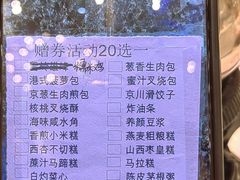 赠券活动20选一
葱香生肉包
港式菠萝包
蜜汁叉烧包
京葱生肉煎包
京川滑饺子
核桃叉烧酥
炸油条
海味咸水角
养颜豆浆
香煎小米糕
燕麦粗粮糕
西杏不切糕
山西枣皇糕
蔗汁马蹄糕
马拉糕
白灼菜心
陈皮茅根粥